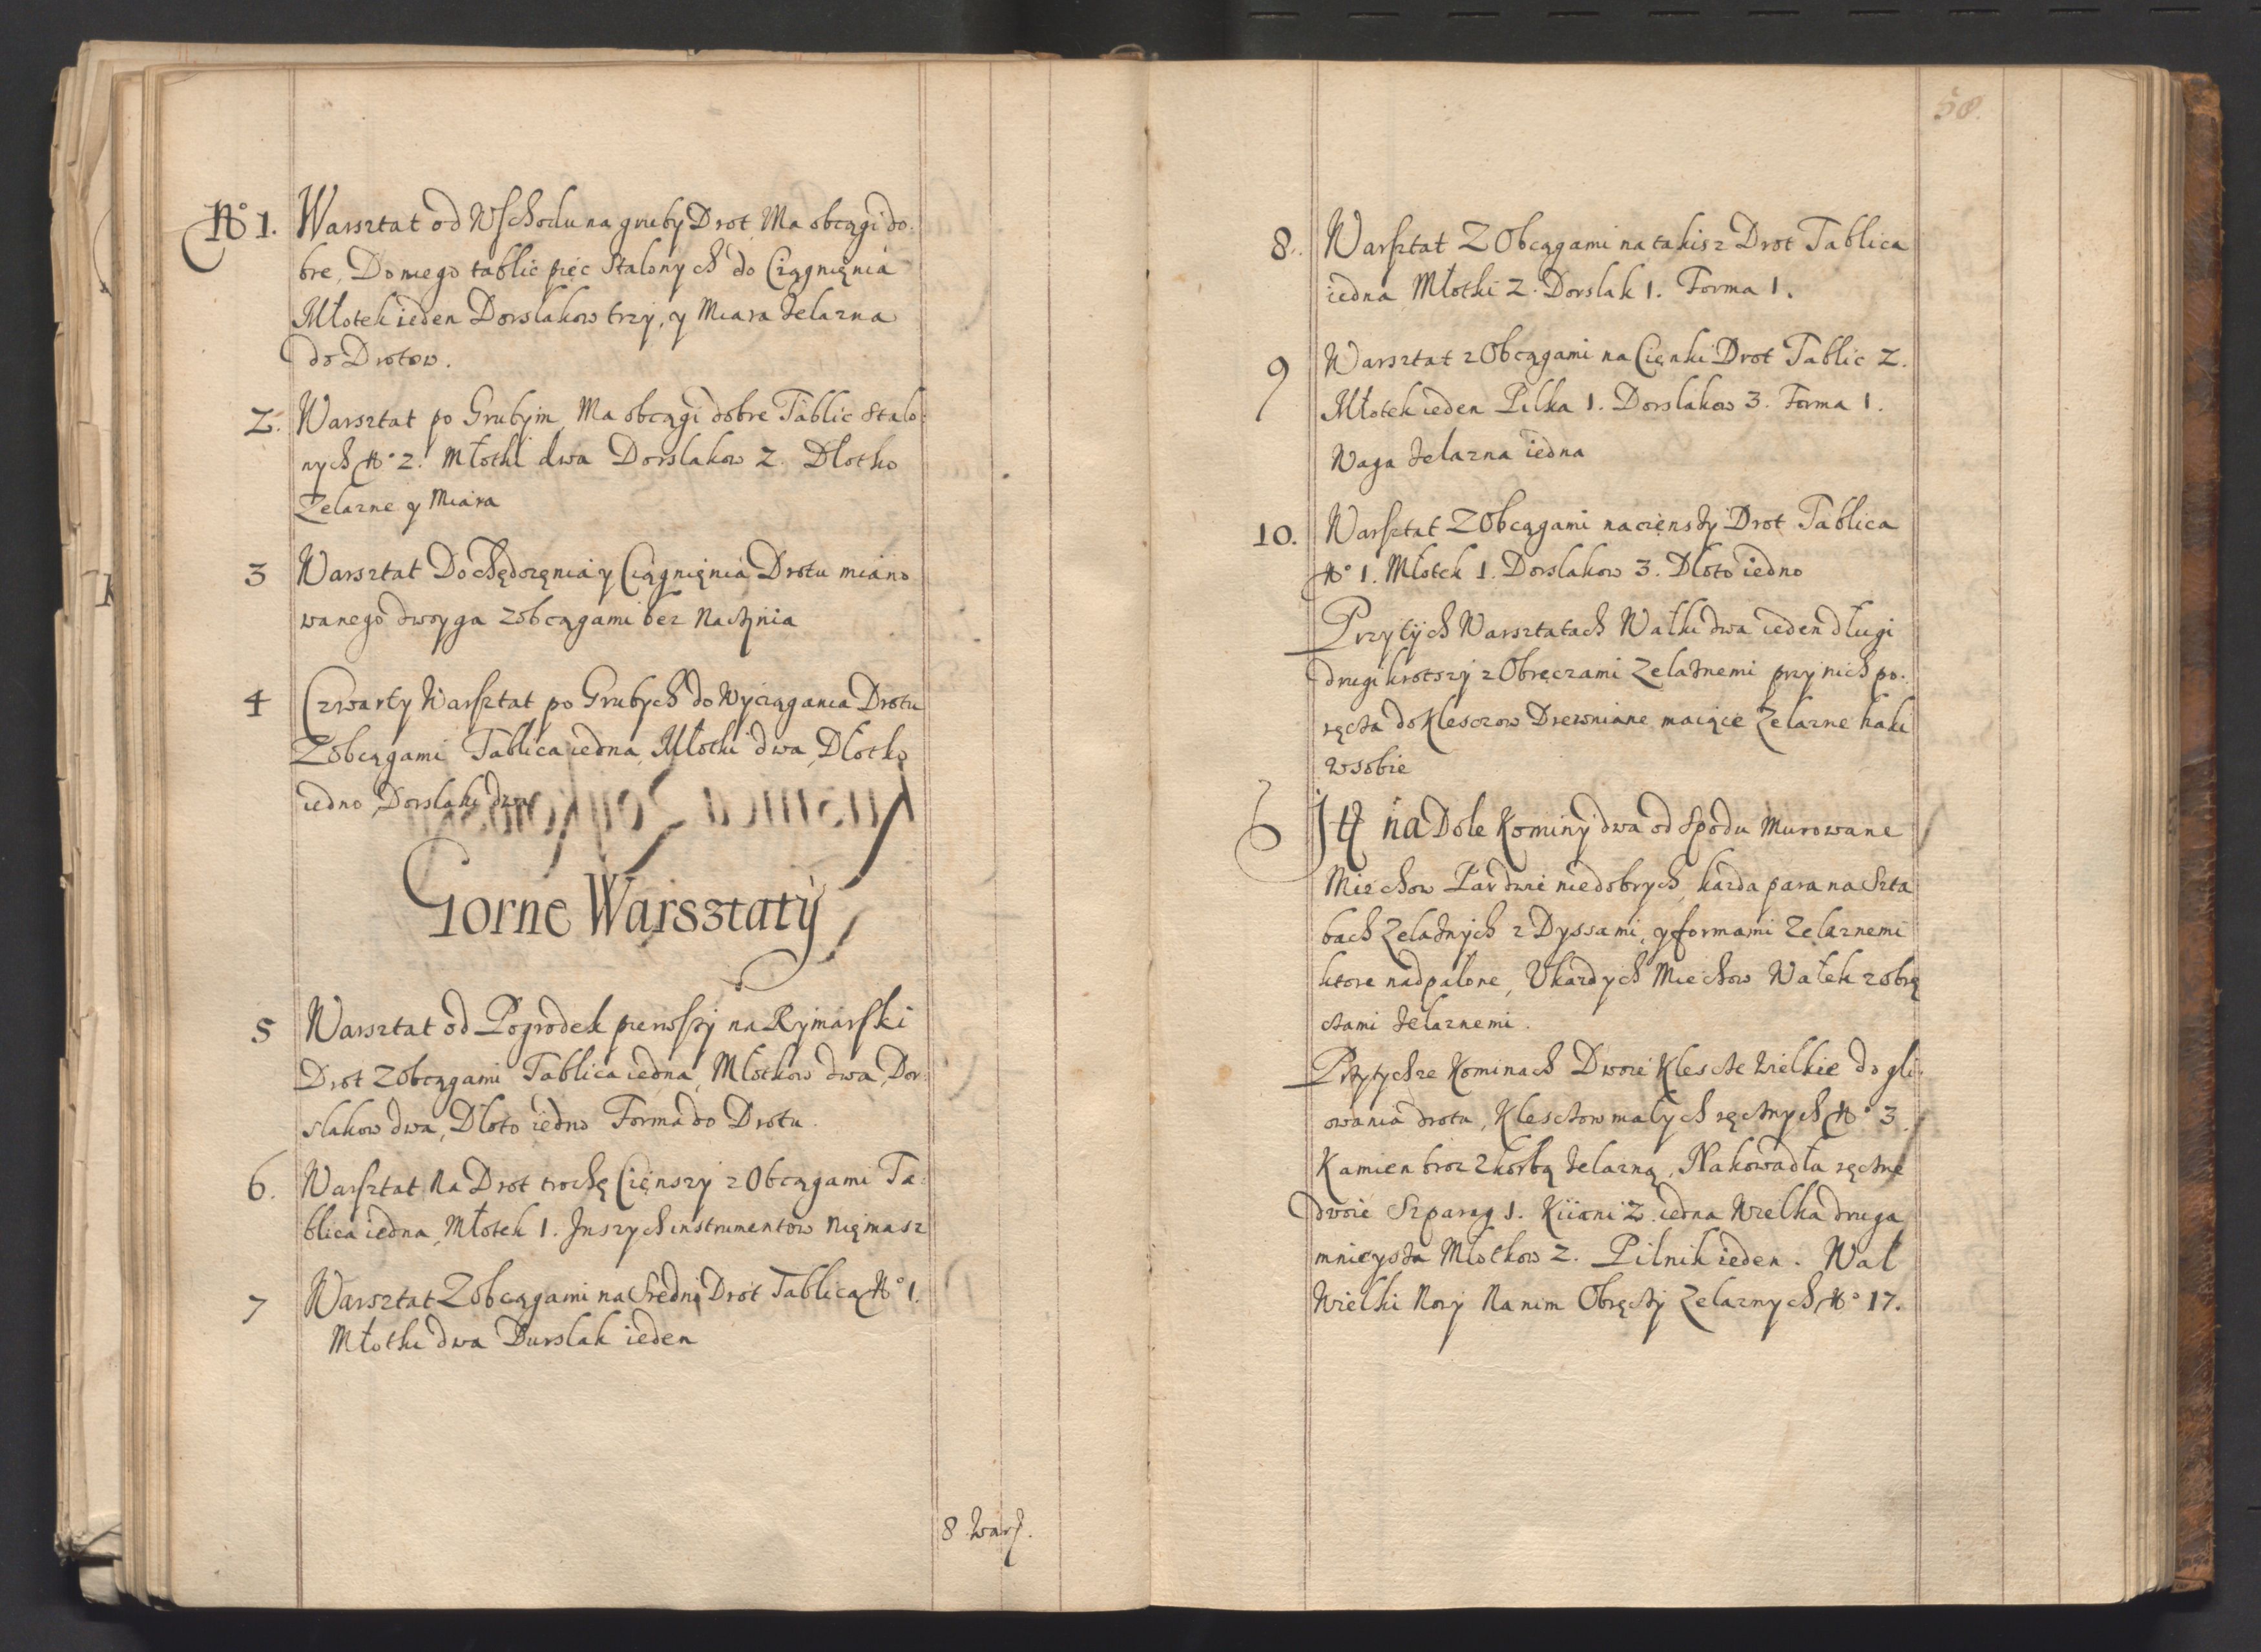 No 1. Warsztat od Wschodu na gruby Drot Ma obcągi do:
bre, Do niego tablic pięc Stalonych do Ciągnięnia
Młotek ieden Dorslakow trzy, y Miara żelazna
do Drotow.
2. Warsztat po Grubym, Ma obcągi dobre Tablic Stalo:
nych No 2. Młotki dwa Dorslakow 2. Dłotko
Zelazne y Miara
3 Warsztat Do Chędorzęnia y Ciągnięnia Drotu miano
wanego dwoyga z obcągami bez Naczynia
4 Czwarty Warsztat po Grubych do Wyciągania Drotu
Z obcągami Tablica iedna, Młotki dwa, Dłotko
iedno, Dorslaki dwa
Gorne Warsztaty
5 Warsztat od Pogrodek pierwszy na Rymarski
Drot Z obcągami Tablica iedna, Młotkow dwa, Dor:
slakow dwa, Dłoto iedno Forma do Drotu.
6. Warsztat Na Drot trochę Cięnszy z Obcągami Ta:
blica iedna, Młotek 1. Inszych instrumentow Nięmasz
7 Warsztat Z obcągami na Sredni Drot Tablica No 1.
Młotki dwa Durslak ieden
8 Warsz.
58.
8. Warsztat Z Obcągami na takisz Drot Tablica
iedna Młotki 2. Dorslak 1. Forma 1.
9 Warsztat z Obcągami na Cięnki Drot Tablic 2.
Młotek ieden Pilka 1. Dorslakow 3. Forma 1.
Waga żelazna iedna
10. Warsztat Z Obcągami na cięnszy Drot Tablica
No 1. Młotek 1. Dorslakow 3. Dłoto iedno
Przytych Warsztatach Wałki dwa ieden długi
drugi krotszy z Obręczami Zelaznemi przy nich po:
ręcza do Klesczow Drewniane maiące Zelazne haki
w sobie
Itē na Dole Kominy dwa od Spodu Murowane
Miechow Par dwie niedobrych, kazda para na Szta
bach Zelaznych z Dyssami, y formami Zelaznemi
ktore nadpalone, U kazdych Miechow Wałek z obrę
czami żelaznemi.
Przytychze Kominach Dwoie Klescze Wielkie do gli:
owania drotu, Klesczow małych ręcznych No 3.
Kamien broz z korbą żelazną, Nakowadła ręczne
dwoie Szparag 1. Kiiani 2. iedna Wielka druga
mnieysza Młotkow 2. Pilnik ieden. Wał
Wielki Nowy Na nim Obręczy Zelaznych No 17.